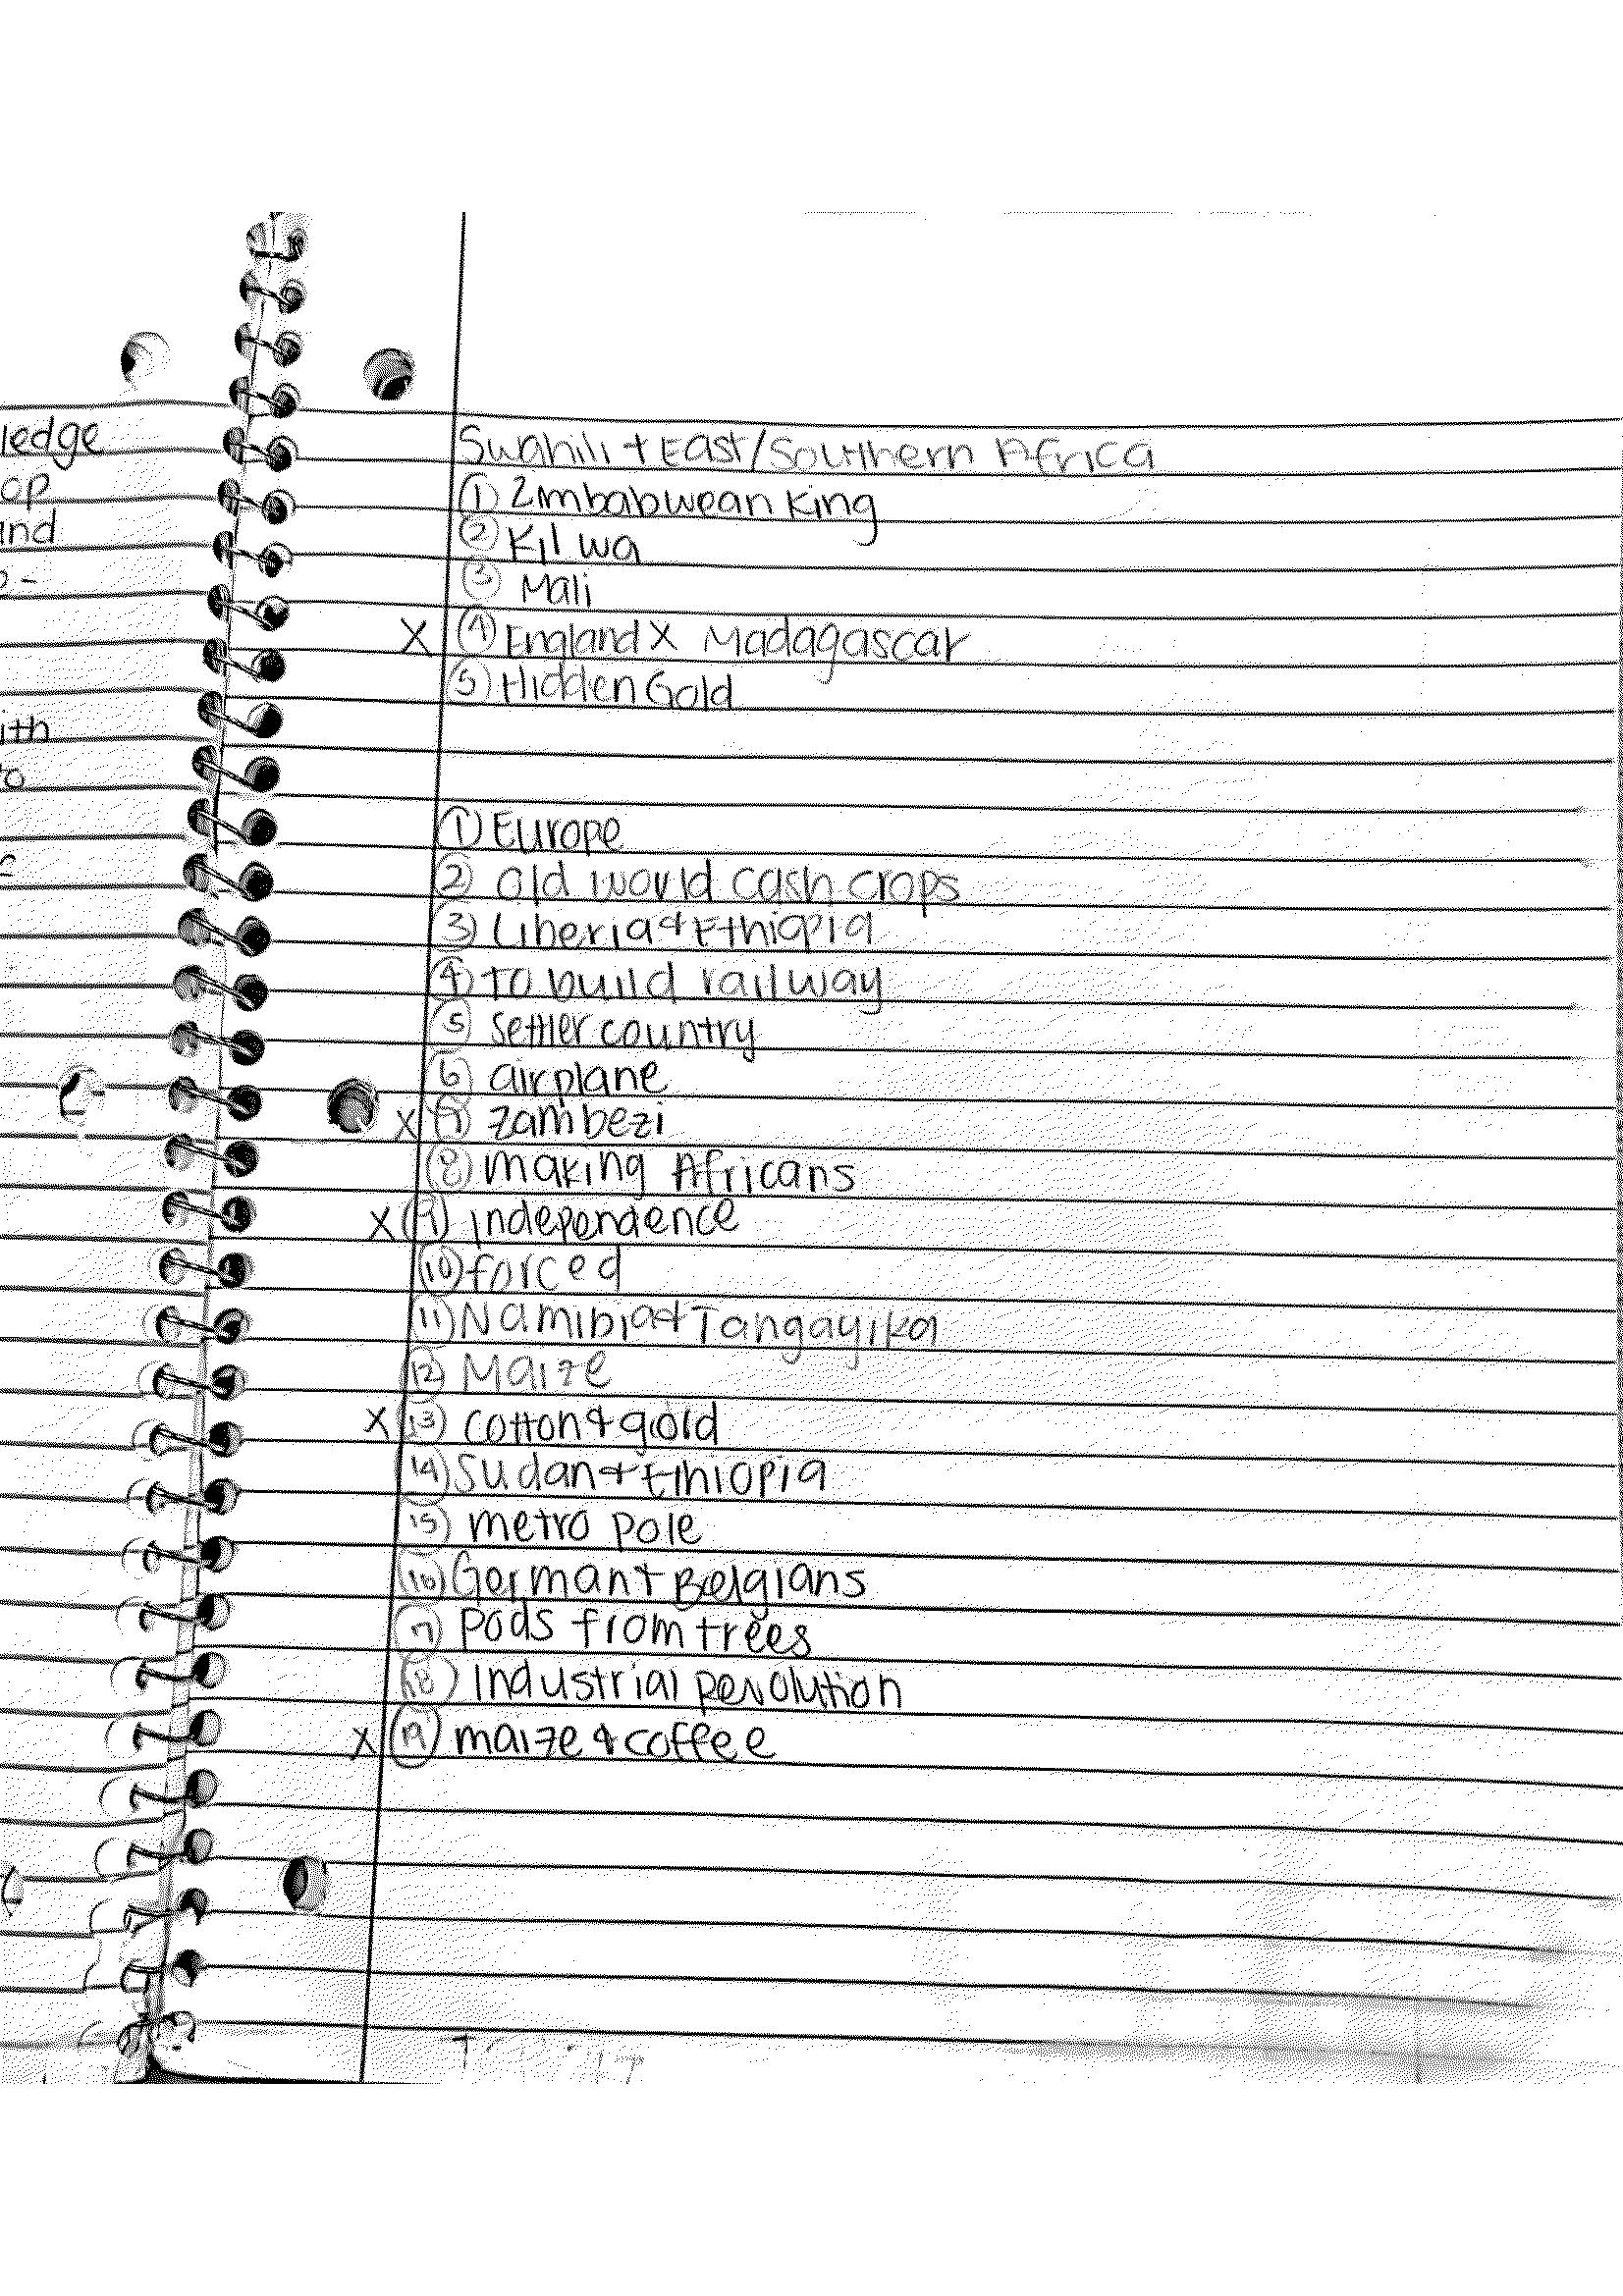 ledge
op
and
o-
ith
to
Swahili + East/Southern Africa
① Zimbabwean King
② Kilwa
③ Mali
X ④ England X Madagascar
⑤ Hidden Gold
① Europe
② Old world cash crops
③ Liberia & Ethiopia
④ to build railway
⑤ settler country
⑥ airplane
X ⑦ Zambezi
⑧ making Africans
X ⑨ independence
⑩ forced
⑪ Namibia & Tangayika
⑫ Maize
X ⑬ cotton & gold
⑭ Sudan & Ethiopia
⑮ metro pole
⑯ German + Belgians
⑰ pods from trees
⑱ industrial revolution
X ⑲ maize & coffee